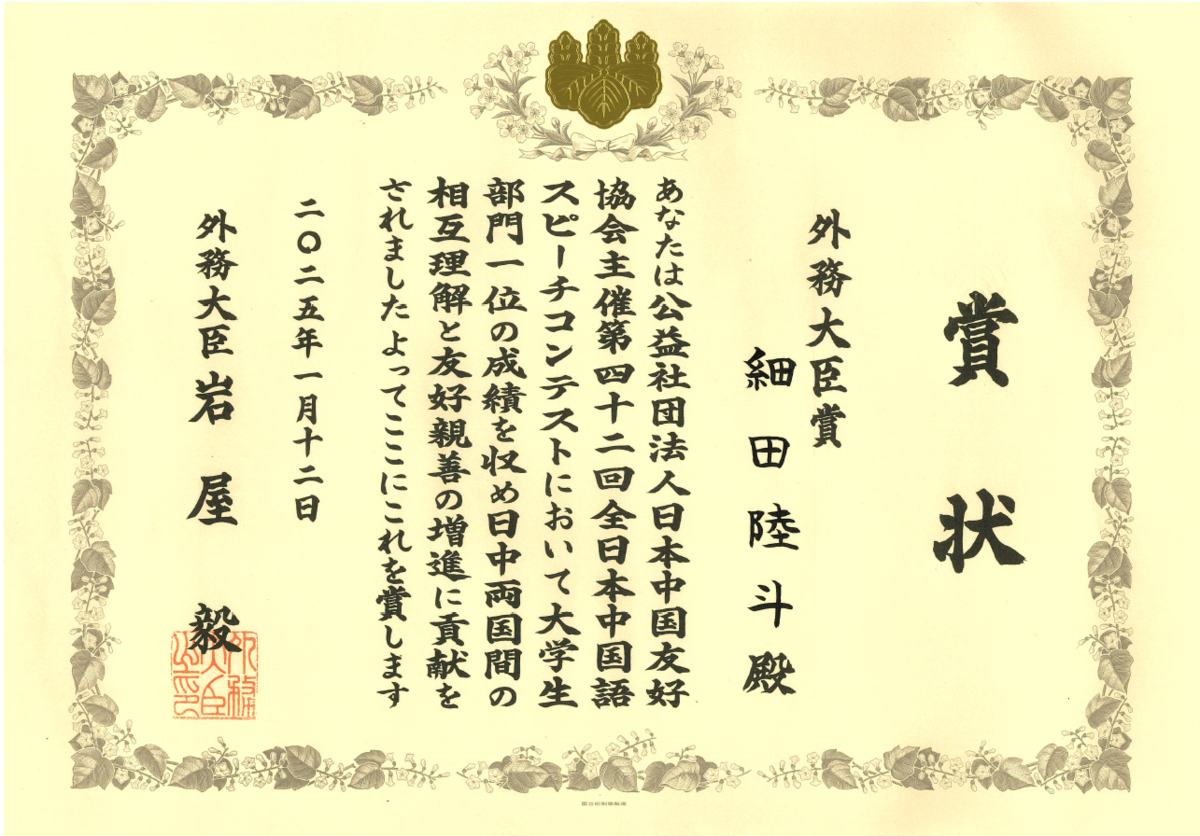 賞状
外務大臣賞
細田陸斗殿
あなたは公益社団法人日本中国友好
協会主催第四十二回全日本中国語
スピーチコンテストにおいて大学生
部門一位の成績を収め日中両国間の
相互理解と友好親善の増進に貢献を
されましたよってここにこれを賞します
二〇二五年一月十二日
外務大臣岩屋毅
外務大臣之印